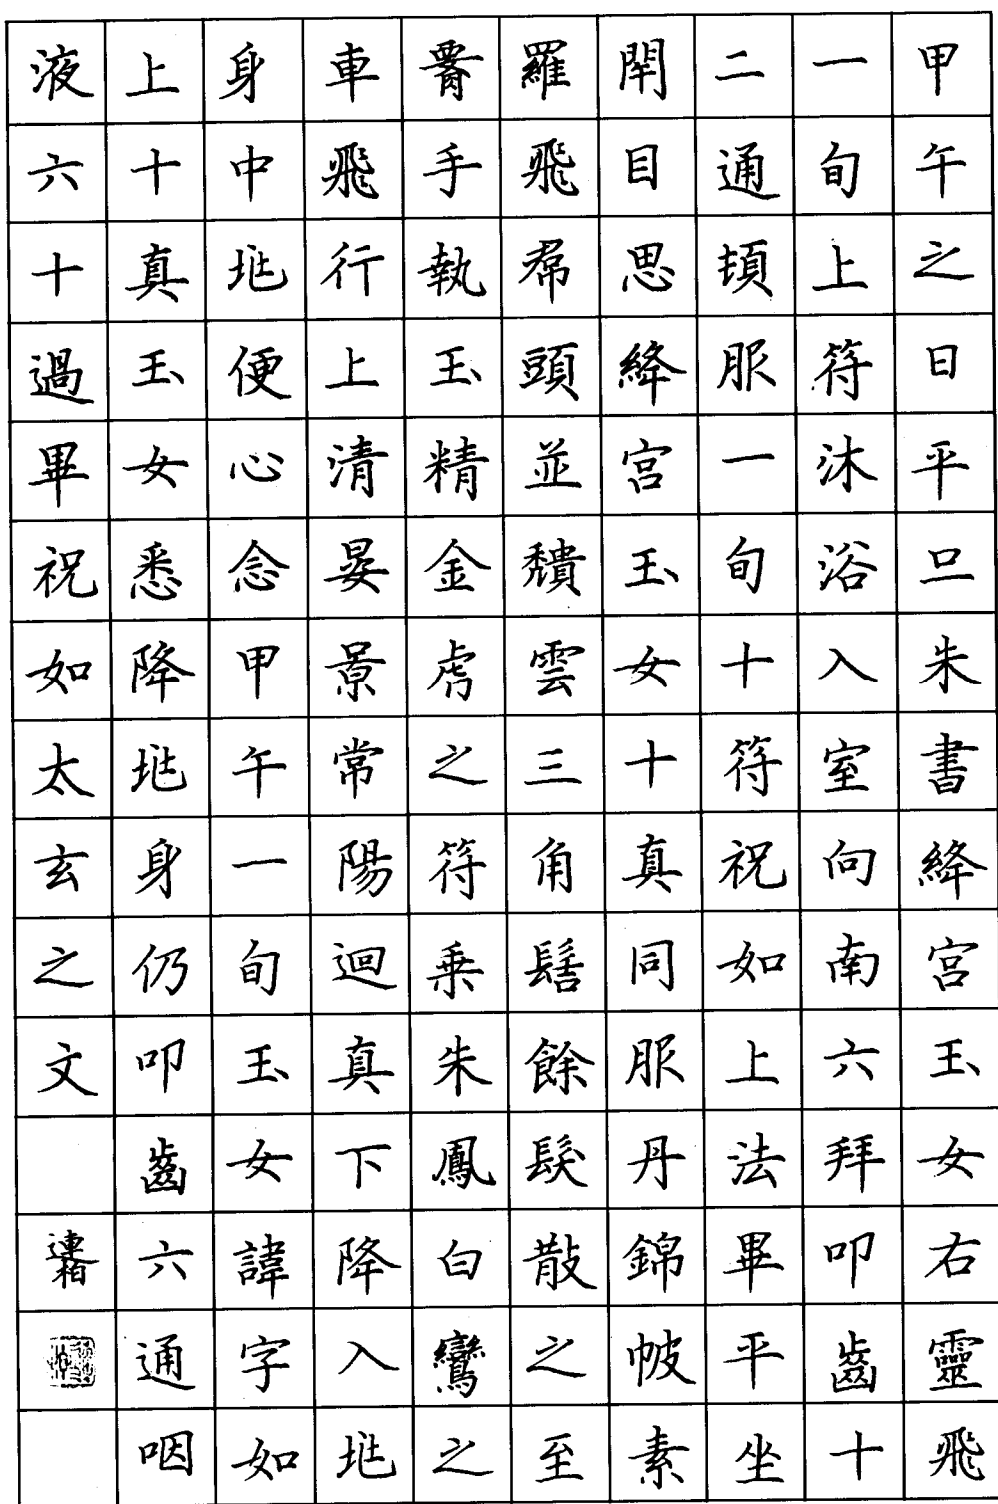 甲午之日平旦朱書絳宮玉女右靈飛
一旬上符沐浴入室向南六拜叩齒十
二通頓服一旬十符祝如上法畢平坐
閉目思絳宮玉女十真同服丹錦帔素
羅飛帬頭並頹雲三角髻餘髮散之至
胷手執玉精金虎之符乗朱鳳白鸞之
車飛行上清晏景常陽迴真下降入𠀌
身中𠀌便心念甲午一旬玉女諱字如
上十真玉女悉降𠀌身仍叩齒六通咽
液六十過畢祝如太玄之文